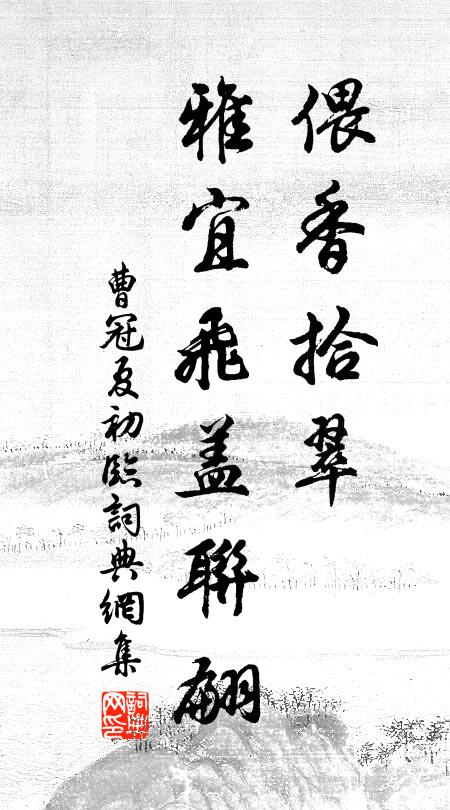 偎香拾翠
雅宜飛蓋聯翩
曹冠夏初臨詞典網集